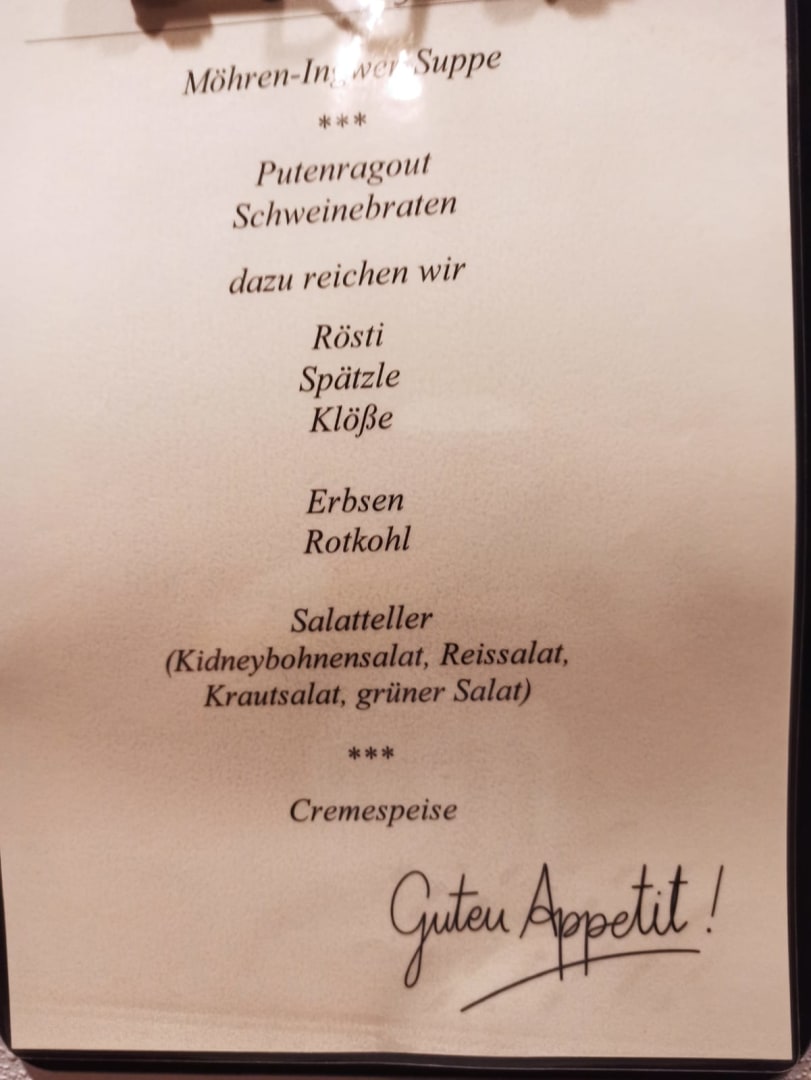 Möhren-Ingwer-Suppe
***
Putenragout
Schweinebraten
dazu reichen wir
Rösti
Spätzle
Klöße
Erbsen
Rotkohl
Salatteller
(Kidneybohnensalat, Reissalat,
Krautsalat, grüner Salat)
***
Cremespeise
Guten Appetit !